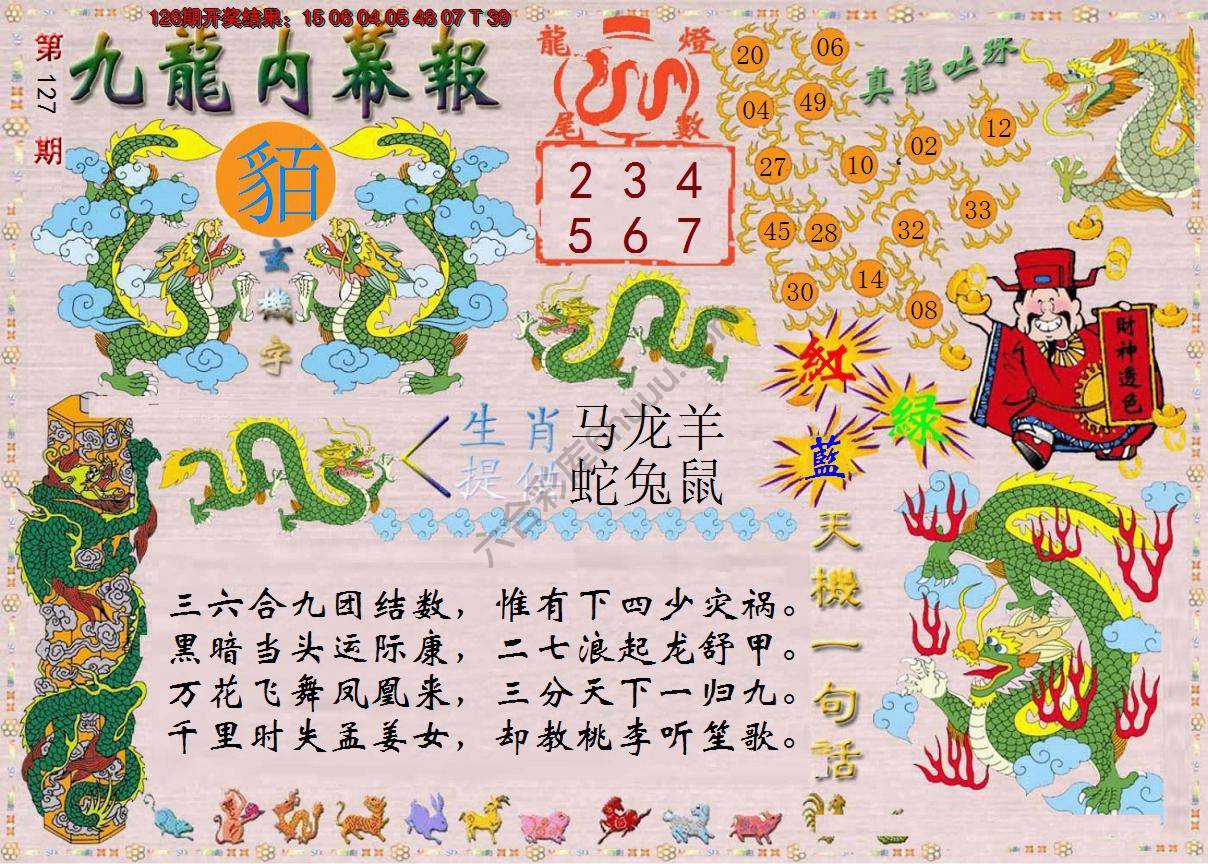 126期开奖结果：15 06 04 05 48 07 T 39
第127期
九龍内幕報
貊
玄機字
龍燈
尾數
2 3 4
5 6 7
真龍吐珠
20 06
04 49
27 10 02 12
45 28 32 33
30 14 08
財神透色
紅
綠
藍
生肖 马龙羊
提供 蛇兔鼠
六合彩库
天機一句話
三六合九团结数，惟有下四少灾祸。
黑暗当头运际康，二七浪起龙舒甲。
万花飞舞凤凰来，三分天下一归九。
千里时失孟姜女，却教桃李听笙歌。